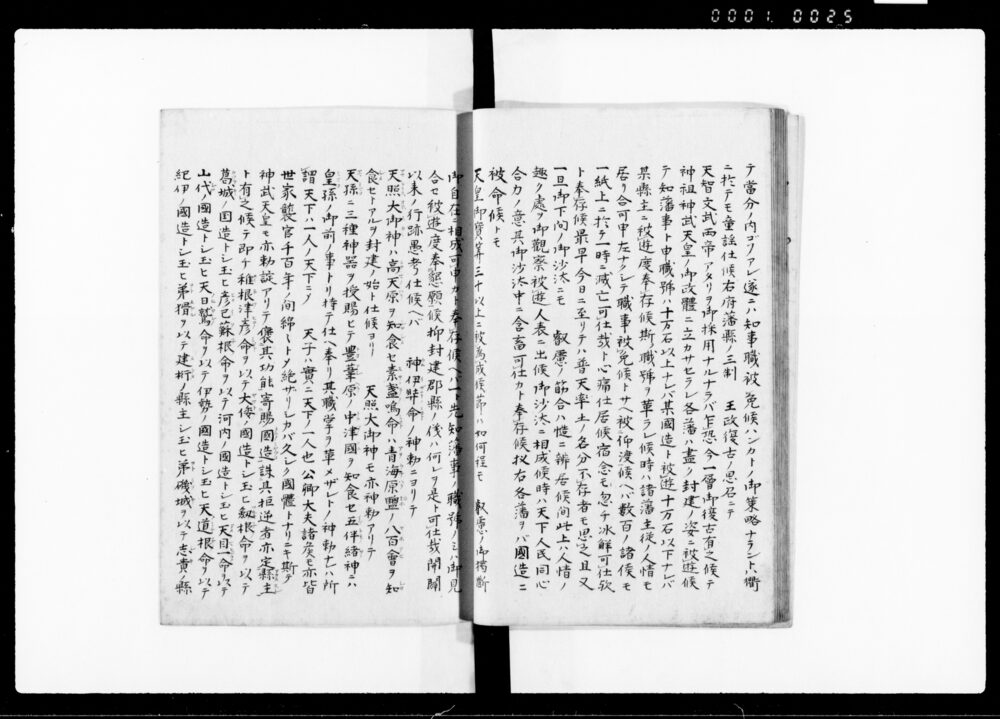 0001 0025
テ當分ノ内コソアレ遂ニハ知事職被免候ハンカトノ御策略ナラント八衢
ニ於テモ童謡仕候右府藩縣ノ三制 王政復古ノ思召ニテ
天智文武両帝ノアタリヲ御採用ナルナラバ乍恐今一層御復古有之候テ
神祖神武天皇ノ御改體ニ立カサセラレ各藩ハ盡ク封建ノ姿ニ被遊候
テ知藩事ト申職號ハ十万石以上ナレバ某國造ト被遊十万石以下ナレバ
某縣主ニ被遊度奉存候斯職號ヲ革ラレ候時ハ諸藩主従ノ人情モ
居リ合可申左ナクシテ職事被免候トサヘ被仰渡候ヘバ数百ノ諸候モ
一紙上ニ於テ一時ニ滅亡可仕哉ト心痛仕居候宿念モ忽チ氷解可仕歟
ト奉存候最早今日ニ至リテハ普天率土ノ名分不存者モ思之且又
一旦御下問ノ御沙汰ニモ 叡慮ノ筋合ハ慥ニ辨居候間此上ハ人情ノ
趣ク處ヲ御観察被遊人表ニ出候御沙汰ニ相成候時ハ天下人民同心
合力ノ意其御沙汰中ニ含畜可仕カト奉存候扨右各藩ヲバ國造ニ
被命候トモ
天皇御寶算三十以上ニ被為成候節ハ如何程モ 叡慮ノ御独断
御自在ニ相成可申カト奉存候ヘバ一ト先知藩事ノ職號ノミハ御見
合セ被遊度奉懇願候抑封建郡縣ノ儀ハ何レヲ是ト可仕哉開闢
以来ノ行跡愚考仕候ヘバ 神伊弉命ノ神勅ニヨリテ
天照大御神ハ高天原ヲ知食セ素盞嗚命ハ青海原鹽ノ八百會ヲ知
食セトアルヲ封建ノ始ト仕候ヨリ 天照大御神モ亦神勅アリテ
天孫ニ三種神器ヲ授賜ヒテ豊葦原ノ中津國ヲ知食セ五伴緒神ニハ
皇孫ノ御前ノ事トリ持テ仕ヘ奉リ其職掌ヲ革メザレトノ神勅ナレハ所
謂天下ハ一人ノ天下ニメ 天子ハ實ニ天下ノ一人也公卿大夫諸矦モ亦皆
世家襲官千百年ノ間綿々トメ絶サリシカバ久シキ國體トナリニキ斯テ
神武天皇モ亦勅諚アリテ褒其功能寄賜國造誅其拒逆者亦定縣主
ト有之候テ即チ稚根津彦命ヲ以テ大倭ノ國造トシ玉ヒ劔根命ヲ以テ
葛城ノ国造トシ玉ヒ彦己蘇根命ヲ以テ河内ノ國造トシ玉ヒ天目命ヲ以テ
山代ノ國造トシ玉ヒ天日鷲命ヲ以テ伊勢ノ國造トシ玉ヒ天道根命ヲ以テ
紀伊ノ國造トシ玉ヒ弟猾ヲ以テ建桁ノ縣主トシ玉ヒ弟磯城ヲ以テ志貴ノ縣